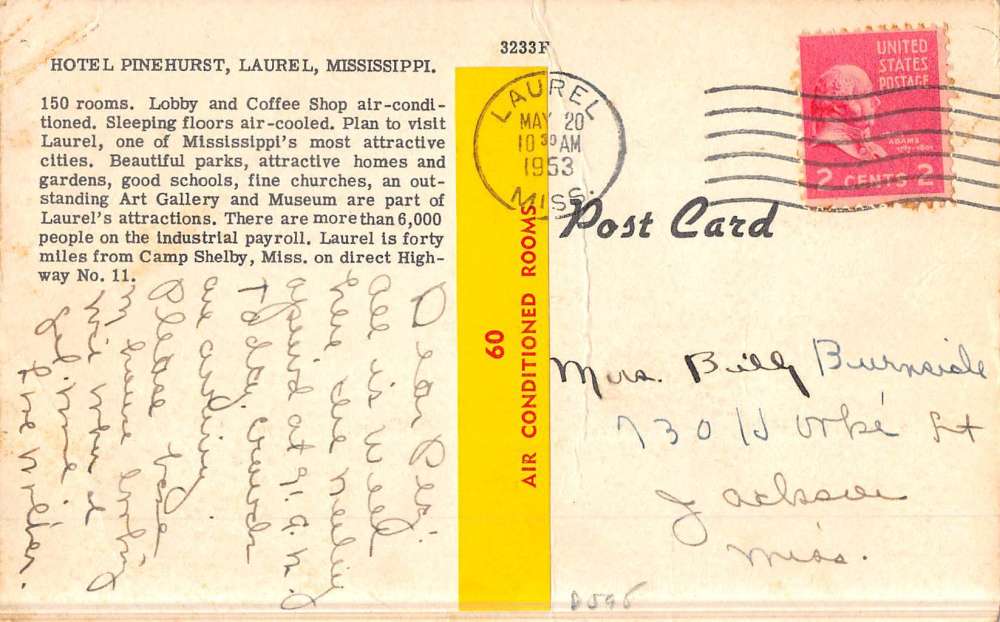 3233F
HOTEL PINEHURST, LAUREL, MISSISSIPPI.
150 rooms. Lobby and Coffee Shop air-condi-
tioned. Sleeping floors air-cooled. Plan to visit
Laurel, one of Mississippi's most attractive
cities. Beautiful parks, attractive homes and
gardens, good schools, fine churches, an out-
standing Art Gallery and Museum are part of
Laurel's attractions. There are more than 6,000
people on the industrial payroll. Laurel is forty
miles from Camp Shelby, Miss. on direct High-
way No. 11.
Dear
all is well
here the
opened at 9.
Today, crowds
are
Please have
M
60
AIR CONDITIONED ROOMS.
LAUREL
MAY 20
10 30 AM
1953
MISS.
UNITED
STATES
POSTAGE
ADAMS
2 CENTS 2
Post Card
Mrs. Billy Burnside
730
St
Jackson
Miss.